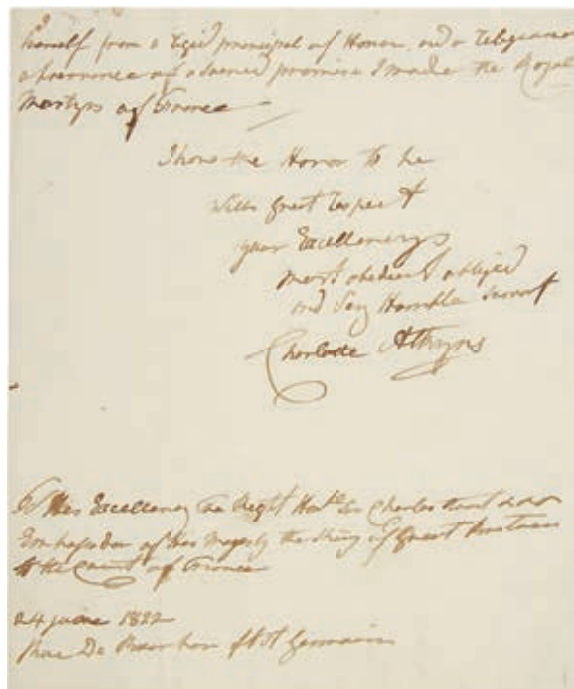 himself from a rigid principal of Honor and a religious
observance of a sacred promise I made the Royal
Martyrs of France
I have the Honor to be
with great respect
your Excellencys
most obedient obliged
and very Humble servant
Charlotte Atkyns
To His Excellency The Right Honble Sir Charles Stuart
Embassador of His Majesty the King of Great Britain
to the Court of France
24 june 1822
Rue De Bourbon fbt St Germain